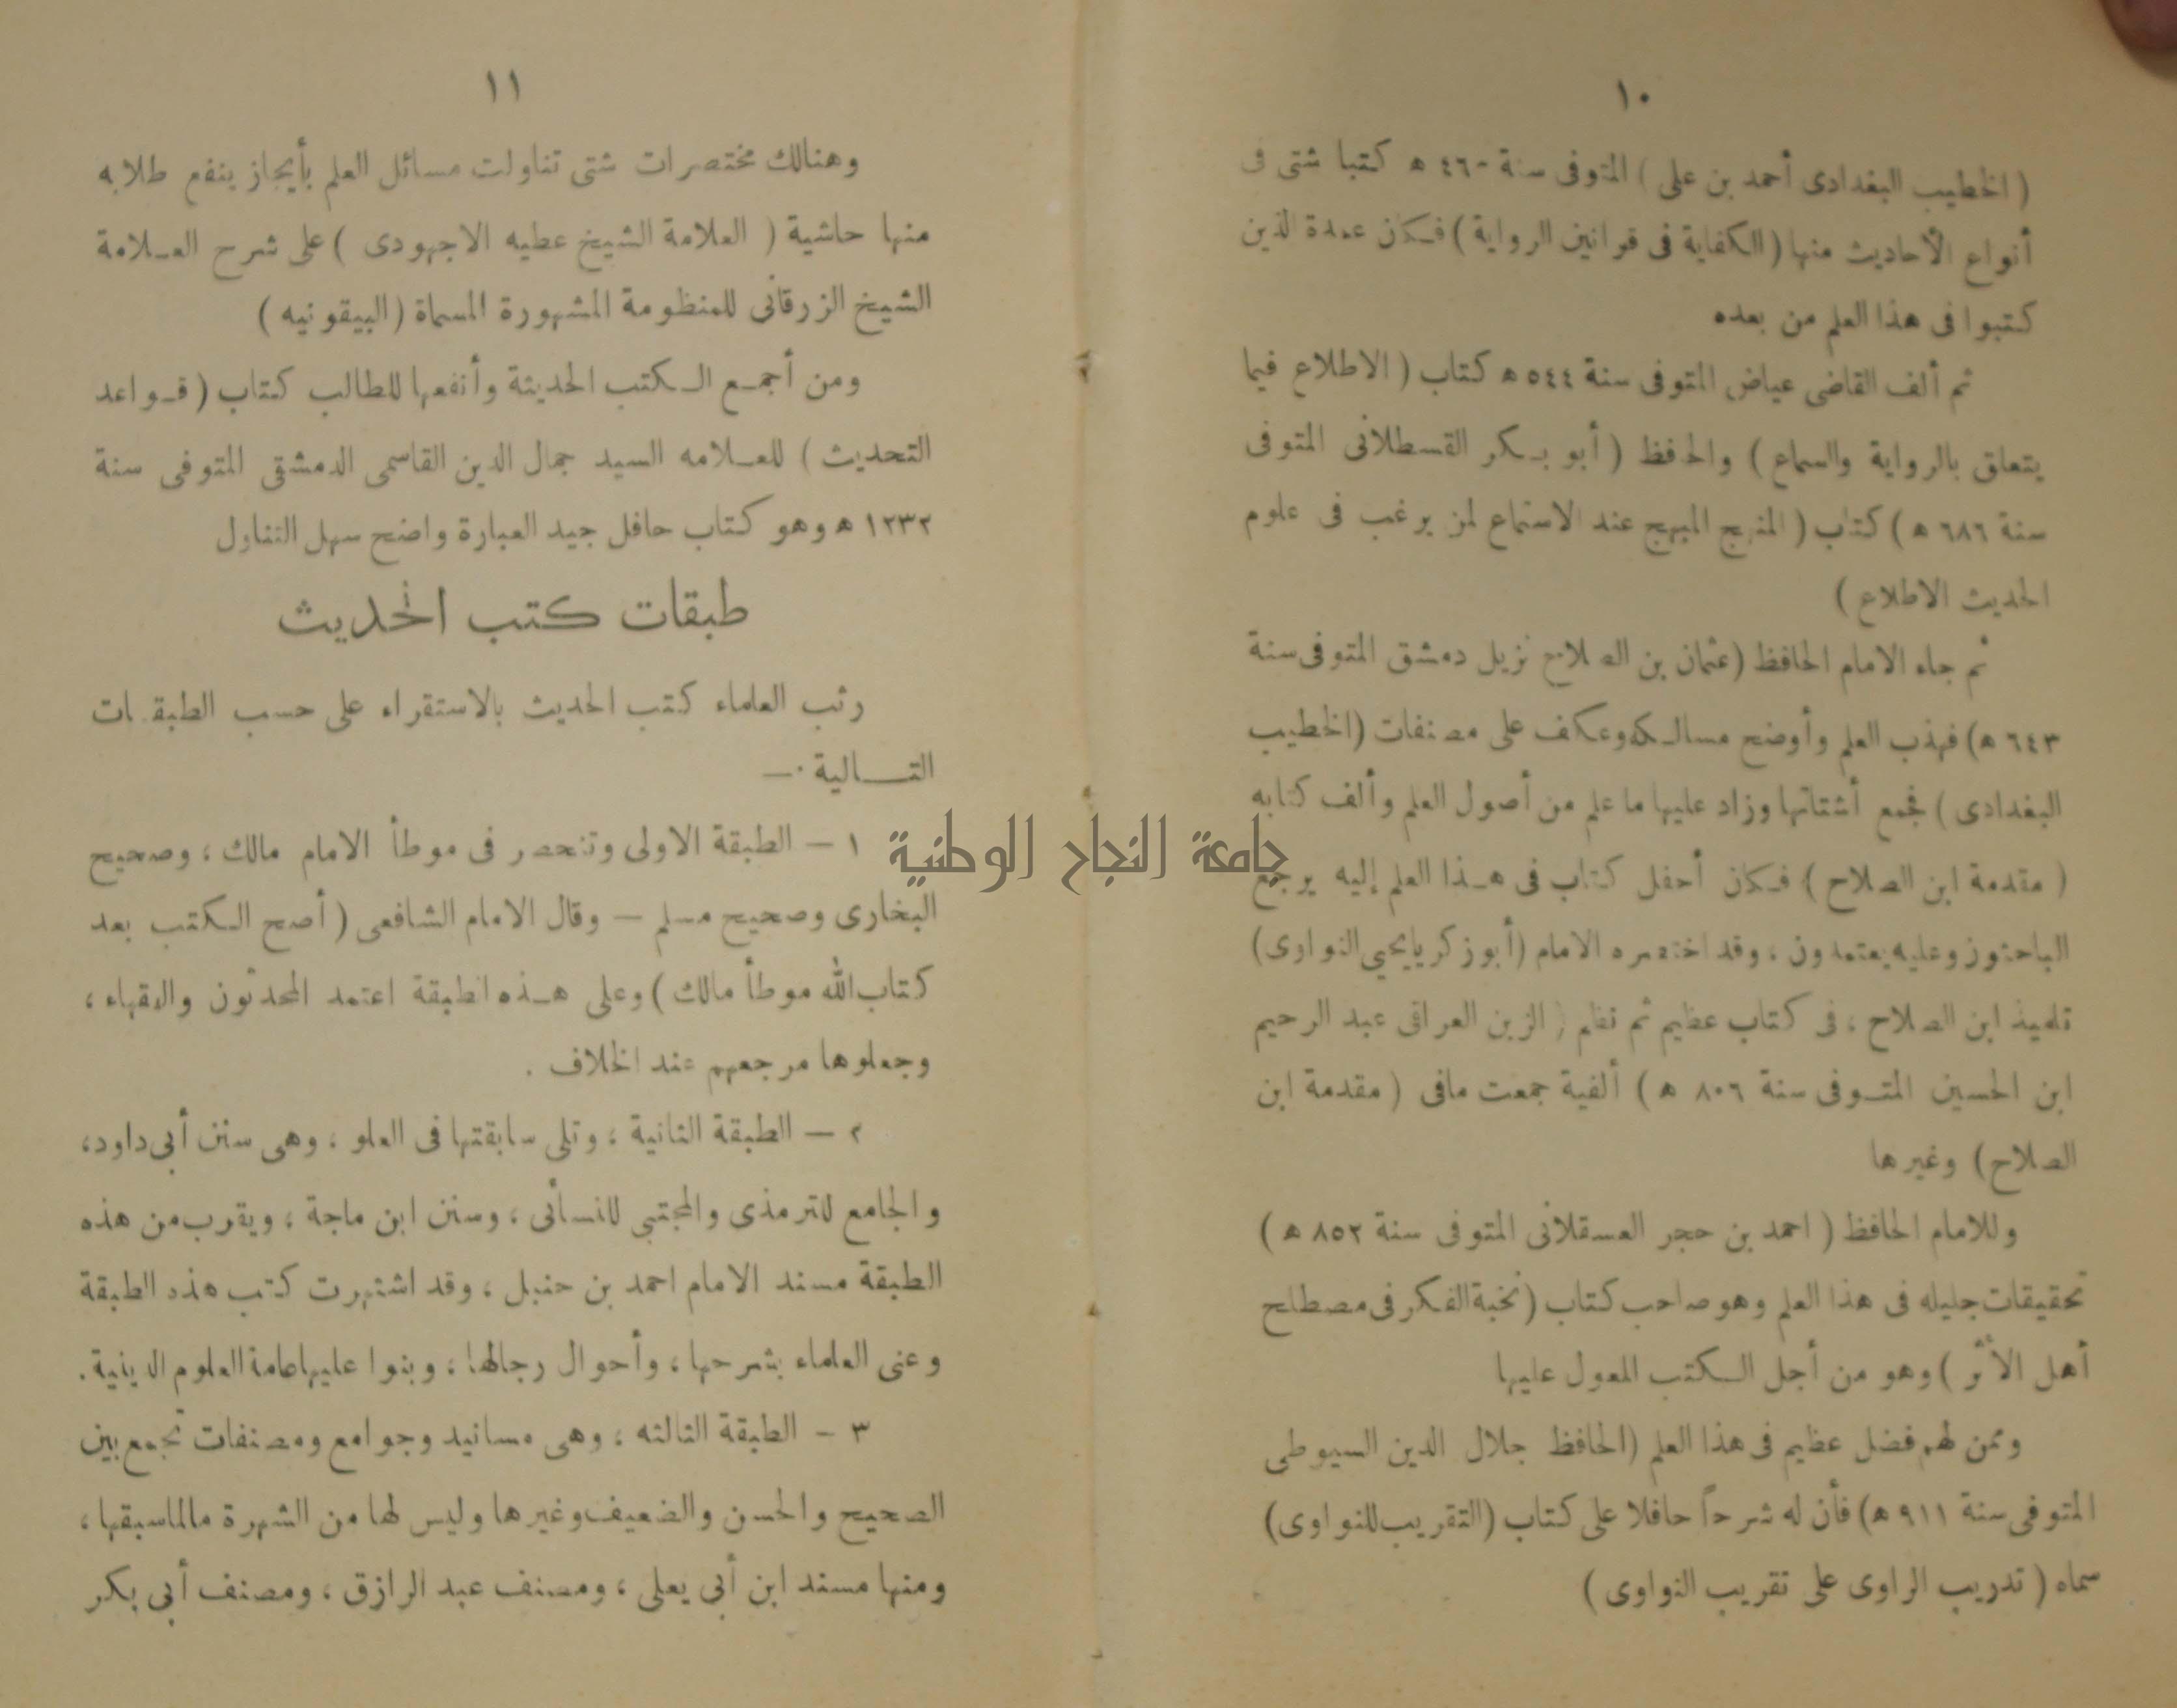 ١٠
( الخطيب البغدادى أحمد بن على ) المتوفى سنة ٤٦٠ ه كتبا شتى فى
أنواع الأحاديث منها ( الكفاية فى قوانين الرواية ) فكان عمدة الذين
كتبوا فى هذا العلم من بعده
ثم ألف القاضى عياض المتوفى سنة ٥٤٤ ه كتاب ( الاطلاع فيما
يتعلق بالرواية والسماع ) والحافظ ( أبو بكر القسطلانى المتوفى
سنة ٦٨٦ ه ) كتاب ( المنهج المبهج عند الاستماع لمن يرغب فى علوم
الحديث الاطلاع )
ثم جاء الامام الحافظ ( عثمان بن الصلاح نزيل دمشق المتوفى سنة
٦٤٣ ه ) فهذب العلم وأوضح مسالكه وعكف على مصنفات ( الخطيب
البغدادى ) فجمع أشتاتها وزاد عليها ما علم من أصول العلم وألف كتابه
( مقدمة ابن الصلاح ) فكان أحفل كتاب فى هذا العلم إليه يرجع
الباحثون وعليه يعتمدون ، وقد اختصره الامام ( أبو زكريا يحيى النواوى )
تلميذ ابن الصلاح ، فى كتاب عظيم ثم نظم ( الزين العراقى عبد الرحيم
ابن الحسين المتوفى سنة ٨٠٦ ه ) ألفية جمعت مافى ( مقدمة ابن
الصلاح ) وغيرها
وللامام الحافظ ( احمد بن حجر العسقلانى المتوفى سنة ٨٥٢ ه )
تحقيقات جليله فى هذا العلم وهو صاحب كتاب ( نخبة الفكر فى مصطلح
أهل الأثر ) وهو من أجل الكتب المعول عليها
وممن لهم فضل عظيم فى هذا العلم ( الحافظ جلال الدين السيوطى
المتوفى سنة ٩١١ ه ) فأن له شرحاً حافلا على كتاب ( التقريب للنواوى )
سماه ( تدريب الراوى على تقريب النواوى )
١١
وهنالك مختصرات شتى تناولت مسائل العلم بأيجاز ينفع طلابه
منها حاشية ( العلامة الشيخ عطيه الاجهودى ) على شرح العلامة
الشيخ الزرقانى للمنظومة المشهورة المسماة ( البيقونيه )
ومن أجمع الكتب الحديثة وأنفعها للطالب كتاب ( قواعد
التحديث ) للعلامه السيد جمال الدين القاسمى الدمشقى المتوفى سنة
١٢٣٢ ه وهو كتاب حافل جيد العبارة واضح سهل التناول
طبقات كتب الحديث
رتب العلماء كتب الحديث بالاستقراء على حسب الطبقات
التالية :—
١ — الطبقة الاولى وتنحصر فى موطأ الامام مالك ، وصحيح
البخارى وصحيح مسلم — وقال الامام الشافعى ( أصح الكتب بعد
كتاب الله موطأ مالك ) وعلى هذه الطبقة اعتمد المحدثون والفقهاء ،
وجعلوها مرجعهم عند الخلاف .
٢ — الطبقة الثانية ، وتلى سابقتها فى العلو ، وهى سنن أبى داود ،
والجامع للترمذى والمجتبى للنسأنى ، وسنن ابن ماجة ، ويقرب من هذه
الطبقة مسند الامام احمد بن حنبل ، وقد اشتهرت كتب هذه الطبقة
وعنى العلماء بشرحها ، وأحوال رجالها ، وبنوا عليها عامة العلوم الدينية .
٣ — الطبقة الثالثه ، وهى مسانيد وجوامع ومصنفات تجمع بين
الصحيح والحسن والضعيف وغيرها وليس لها من الشهرة مالما سبقها ،
ومنها مسند ابن أبى يعلى ، ومصنف عبد الرازق ، ومصنف أبى بكر
جامعة النجاح الوطنية